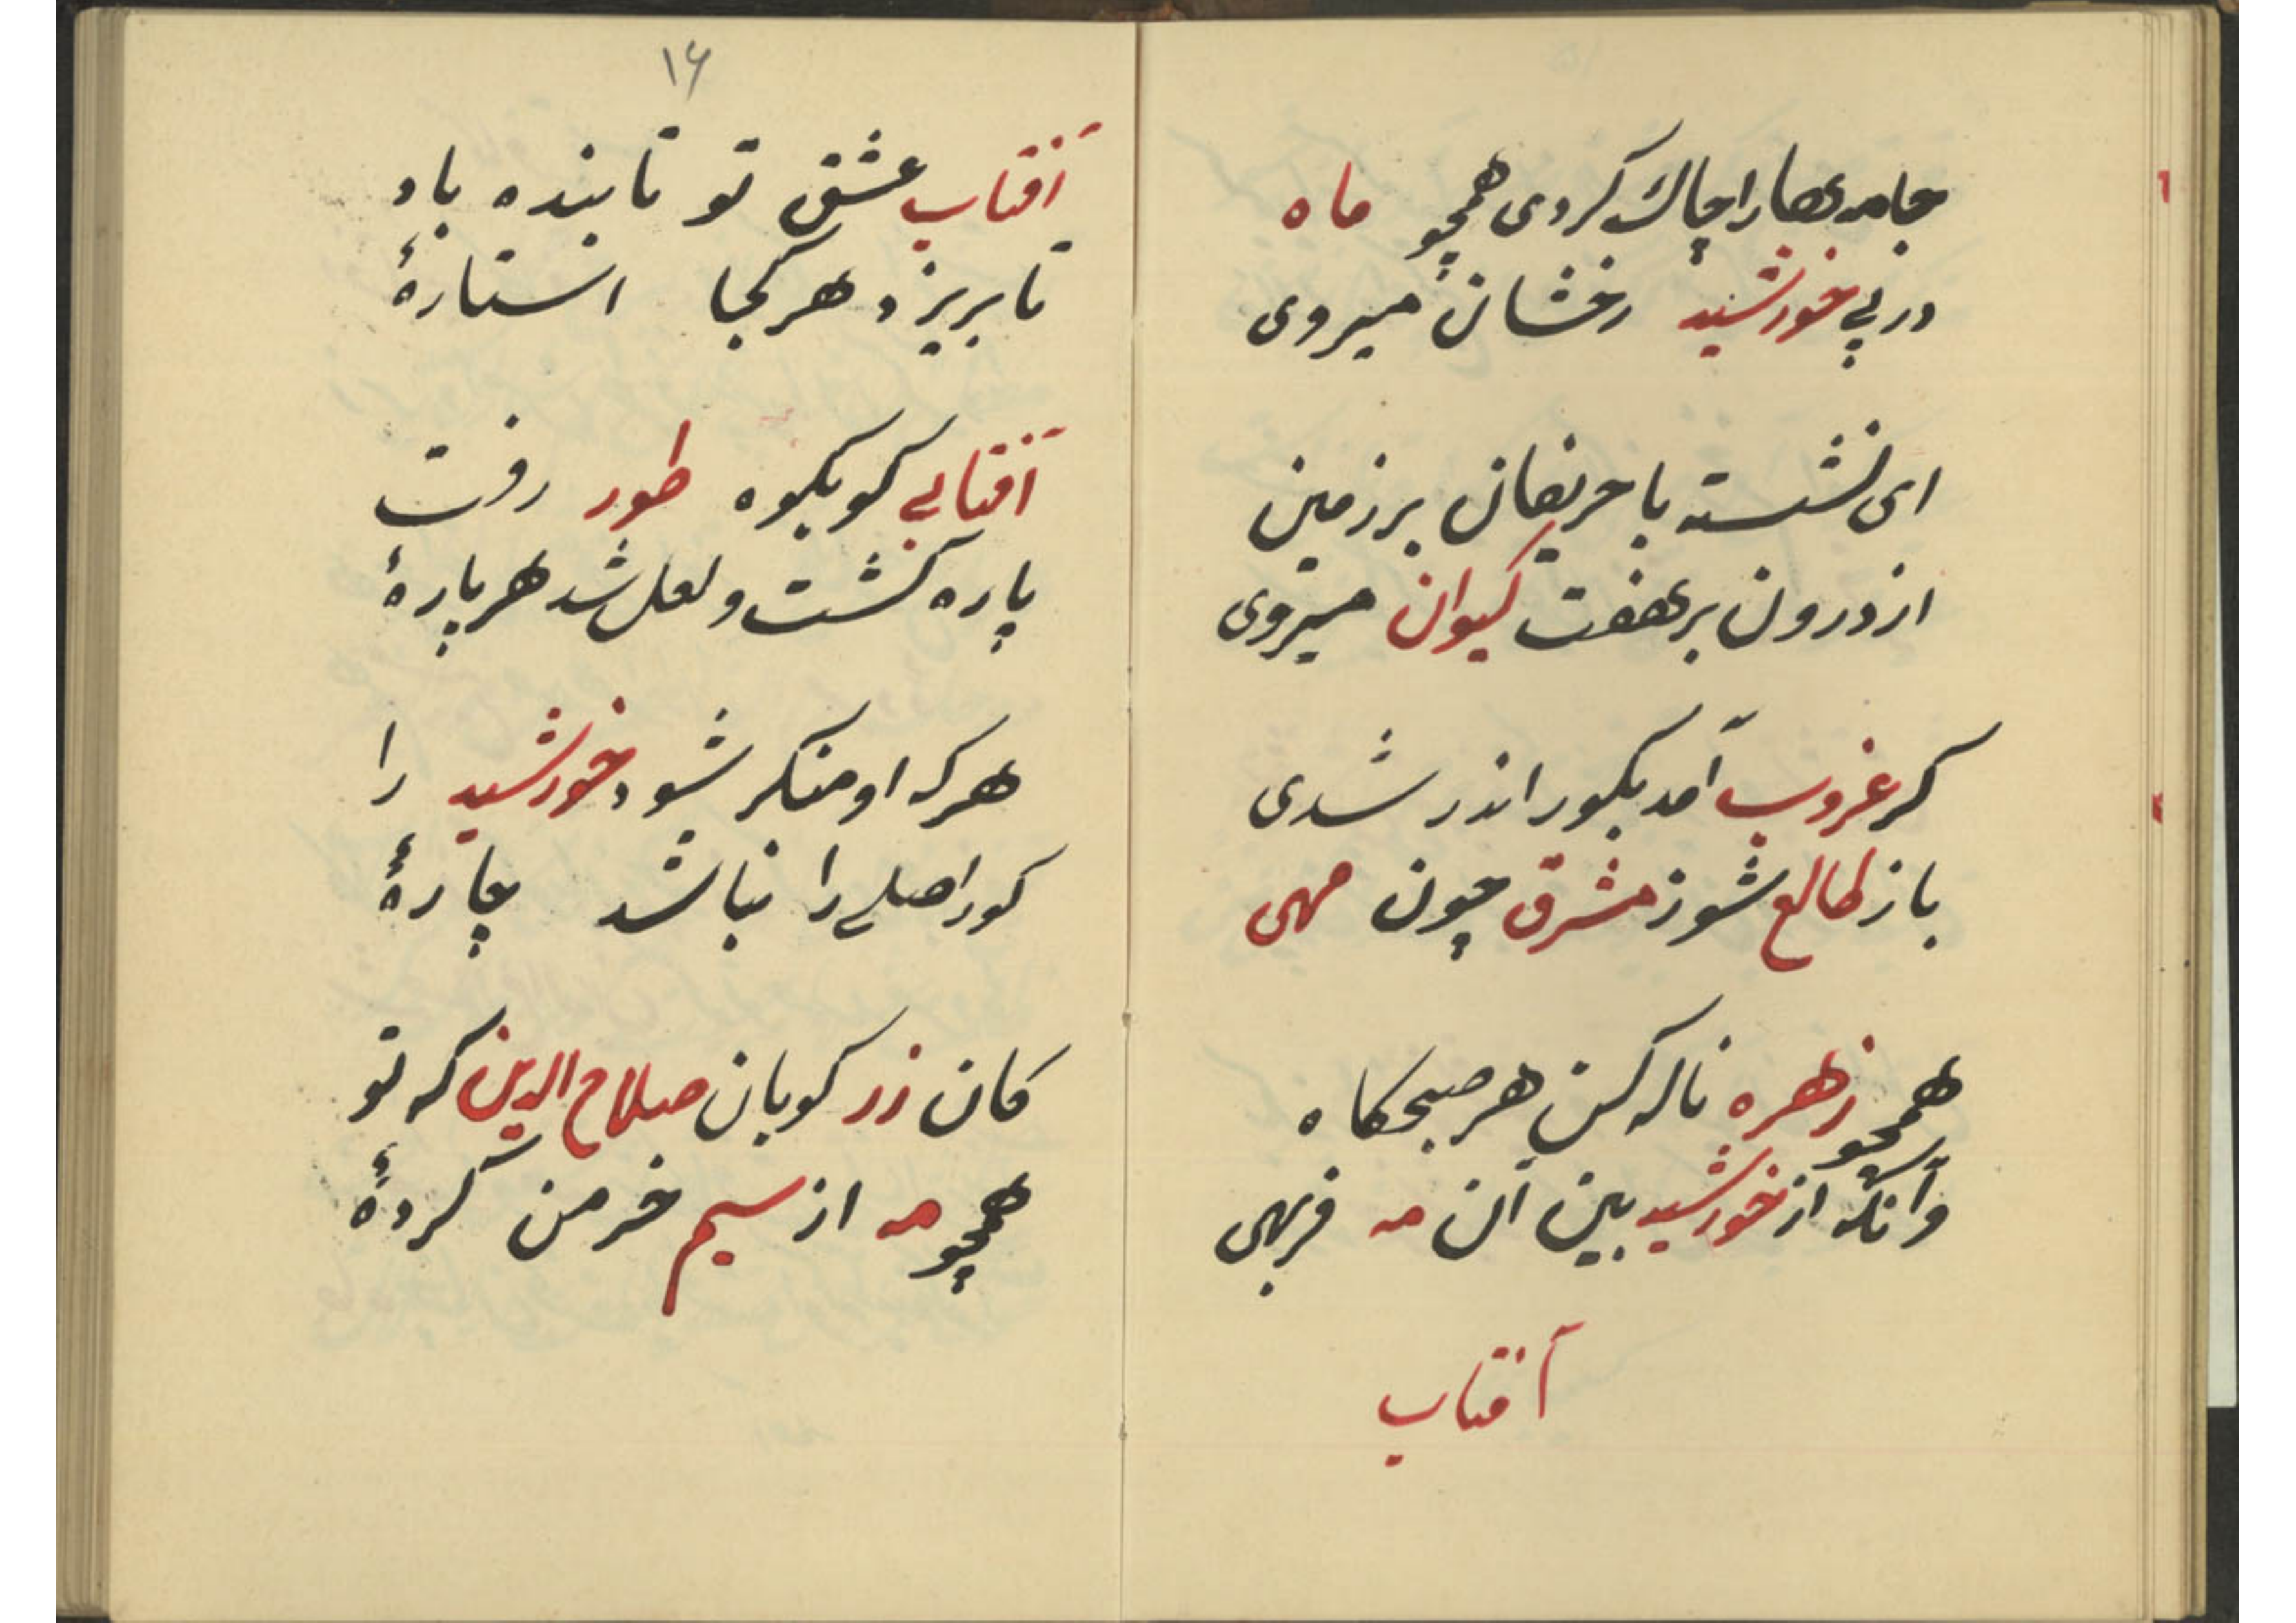 جامه‌ها را چاک کردی همچو ماه
در پی خورشید رخشان میروی
ای نشسته با حریفان بر زمین
از درون بر هفت کیوان میروی
کر غروب آمد بکور اندر شدی
باز طالع شو ز مشرق چون مهی
همچو زهره ناله کن هر صبحکاه
وآنکه از خورشید بین آن مه فربهی
آفتاب
۱۶
آفتاب عشق تو تابنده باد
تا بریزد هر کجا استارهٔ
آفتابی کو بکوه طور رفت
پاره کشت و لعل شد هر پارهٔ
هر که او منکر شود خورشید را
کور اصلی را نباشد چارهٔ
کان زر کوبان صلاح الدین که تو
همچو مه از سیم خرمن کردهٔ